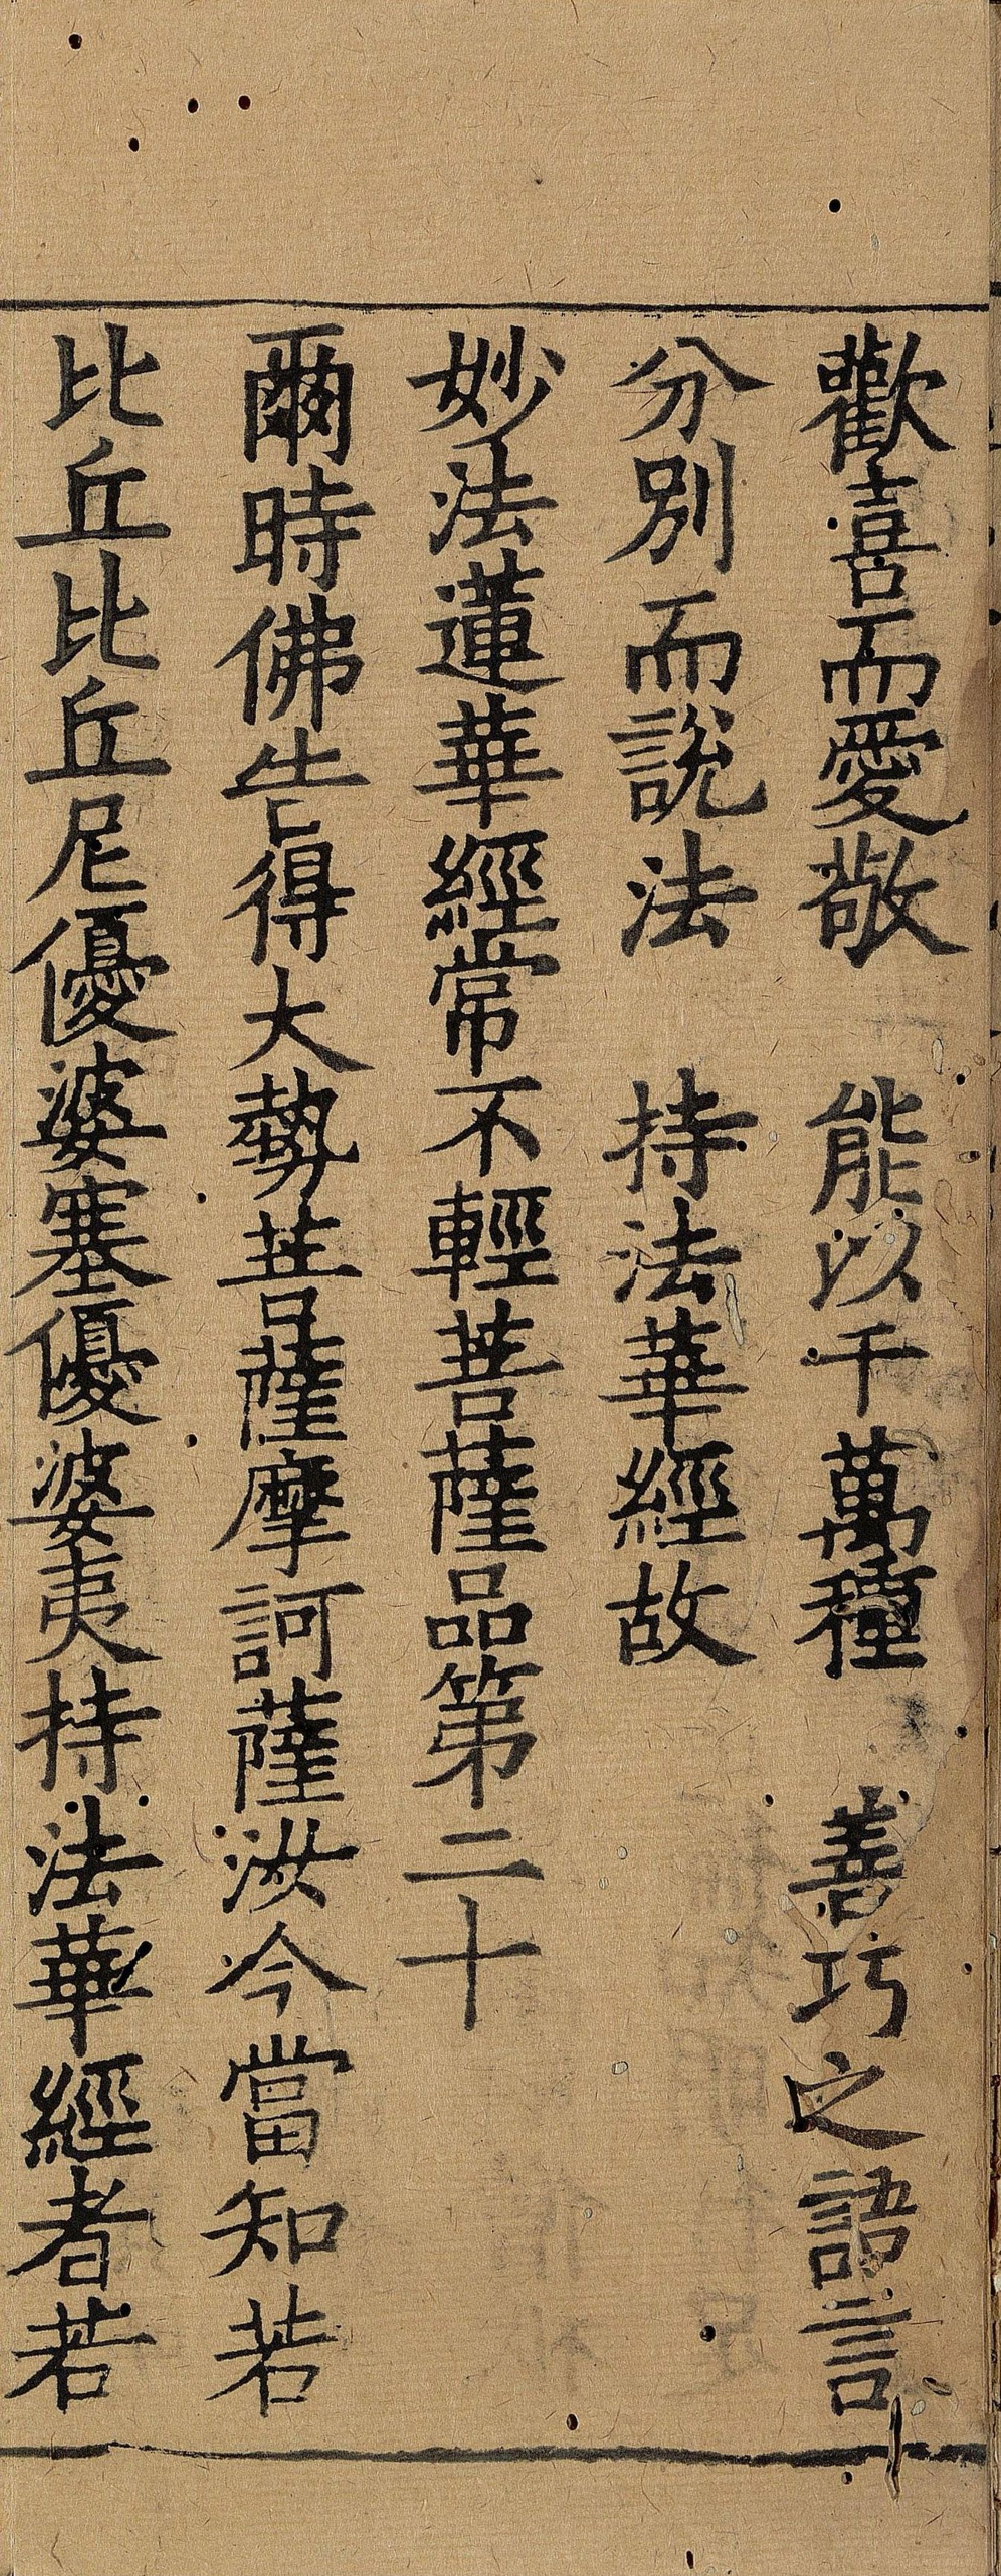 歡喜而愛敬　能以千萬種　善巧之語言
分別而說法　持法華經故
妙法蓮華經常不輕菩薩品第二十
爾時佛告得大勢菩薩摩訶薩汝今當知若
比丘比丘尼優婆塞優婆夷持法華經者若